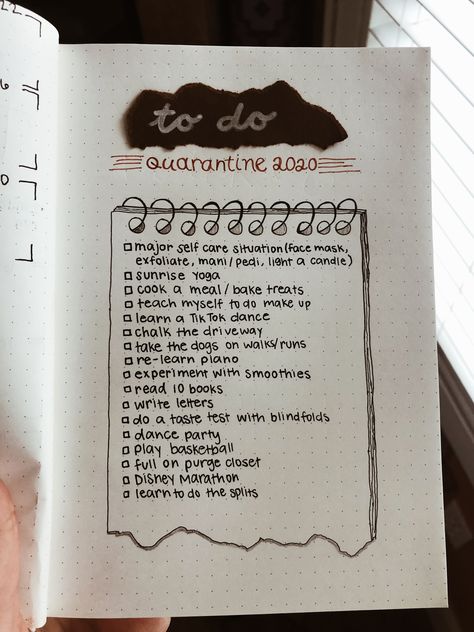 to do
Quarantine 2020
major self care situation (face mask,
exfoliate, mani/pedi, light a candle)
sunrise yoga
cook a meal/bake treats
teach myself to do make up
learn a TikTok dance
chalk the driveway
take the dogs on walks/runs
re-learn piano
experiment with smoothies
read 10 books
write letters
do a taste test with blindfolds
dance party
play basketball
full on purge closet
Disney Marathon
learn to do the splits